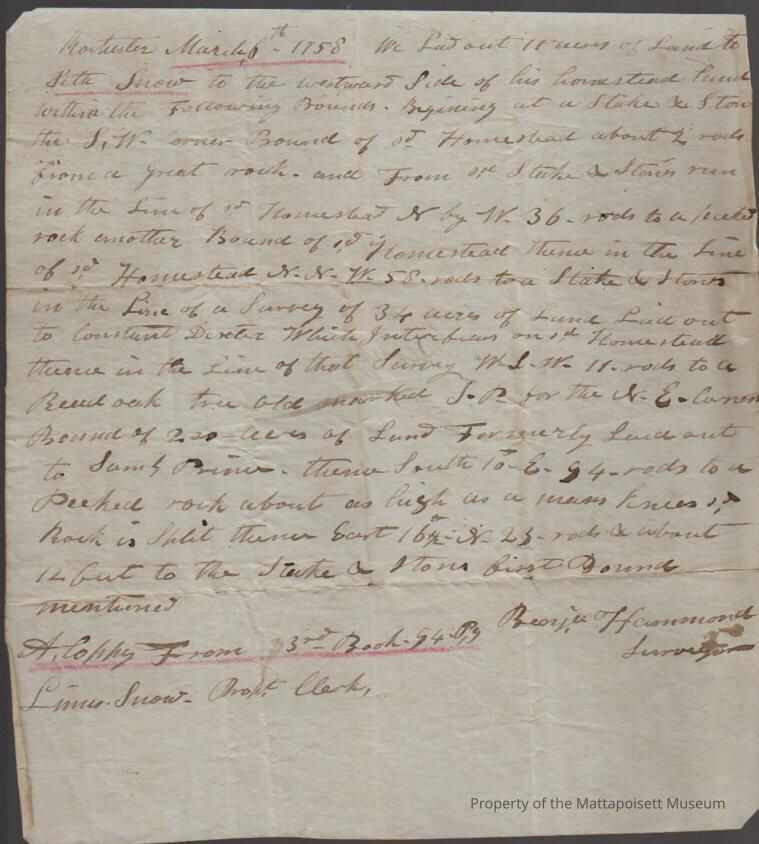 Rochester March 6th - 1758 We Lad out 11 acres of Land to
Seth Snow to the westward Side of his homestead Land
within the Following Bounds. Begining at a Stake & Ston
the S. W. corner Bound of sd Homestead about 2 rods
from a great rock. and From sd Stake & Stones run
in the Line of sd Homestead N by W. 36. rods to a
rock another Bound of sd Homestead thence in the Line
of sd Homestead N. N. W. 58. rods to a Stake & Stones
in the Line of a Survey of 34 acres of Land Laid out
to Constant Dexter Which on sd Homestead
thence in the Line of that Survey W. S. W. 11. rods to a
Reed oak tree old marked S. P. for the N. E. Corner
Bound of 200 acres of Land Formerly Laid out
to Saml Prince. thence South 10 E. 94 rods to a
Peeked rock about as high as a mans knees sd
Rock is Split thence East N. 23 rods & about
12 feet to the Stake & Stons first Bound
mentioned
Benja Hammond
Surveyor
A Coppy From 3rd Book. 94. Pg
Linus. Snow. Propt. Clerk,
Property of the Mattapoisett Museum